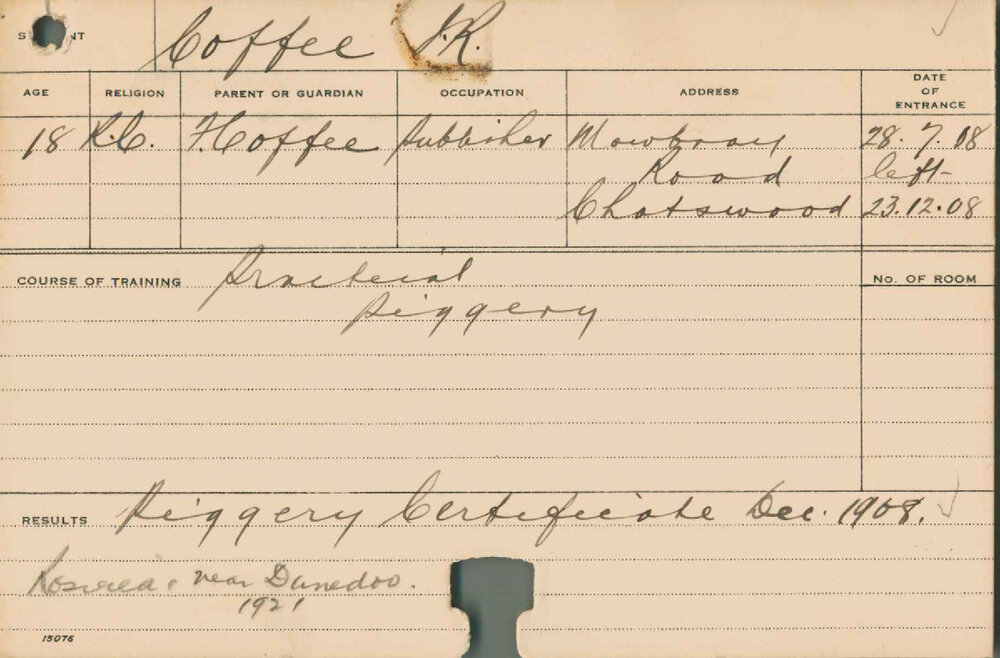 S NT Coffee J.R.
AGE RELIGION PARENT OR GUARDIAN OCCUPATION ADDRESS DATE OF ENTRANCE
18 R.C. F. Coffee Publisher Mowbray 28.7.08
Road left-
Chatswood 23.12.08
COURSE OF TRAINING Practical No. OF ROOM
Piggery
RESULTS Piggery Certificate Dec. 1908.
near Dunedoo.
1921
15076